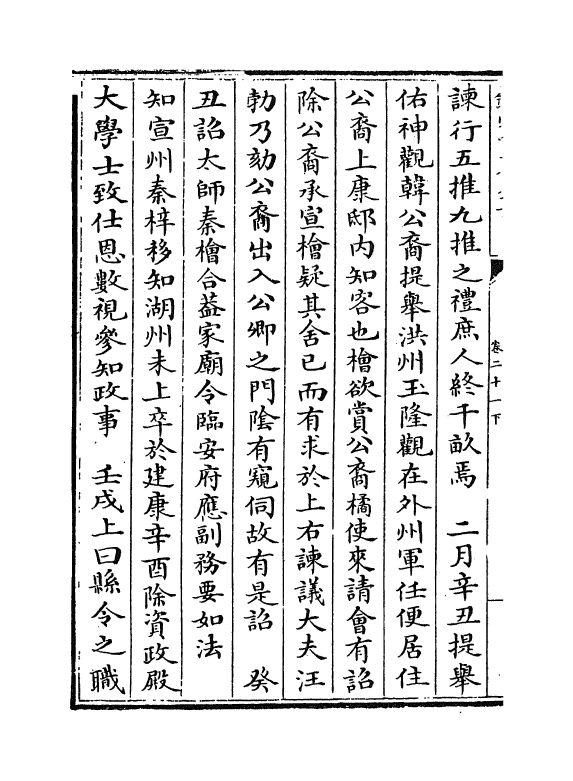 卷二十一下
諫行五推九推之禮庶人終千畝焉　二月辛丑提舉
佑神觀韓公裔提舉洪州玉隆觀在外州軍任便居住
公裔上康邸内知客也檜欲賞公裔橘使來請會有詔
除公裔承宣檜疑其舍已而有求於上右諫議大夫汪
勃乃劾公裔出入公卿之門陰有窺伺故有是詔　癸
丑詔太師秦檜合葢家廟令臨安府應副務要如法
知宣州秦梓移知湖州未上卒於建康辛酉除資政殿
大學士致仕恩數視參知政事　壬戌上曰縣令之職